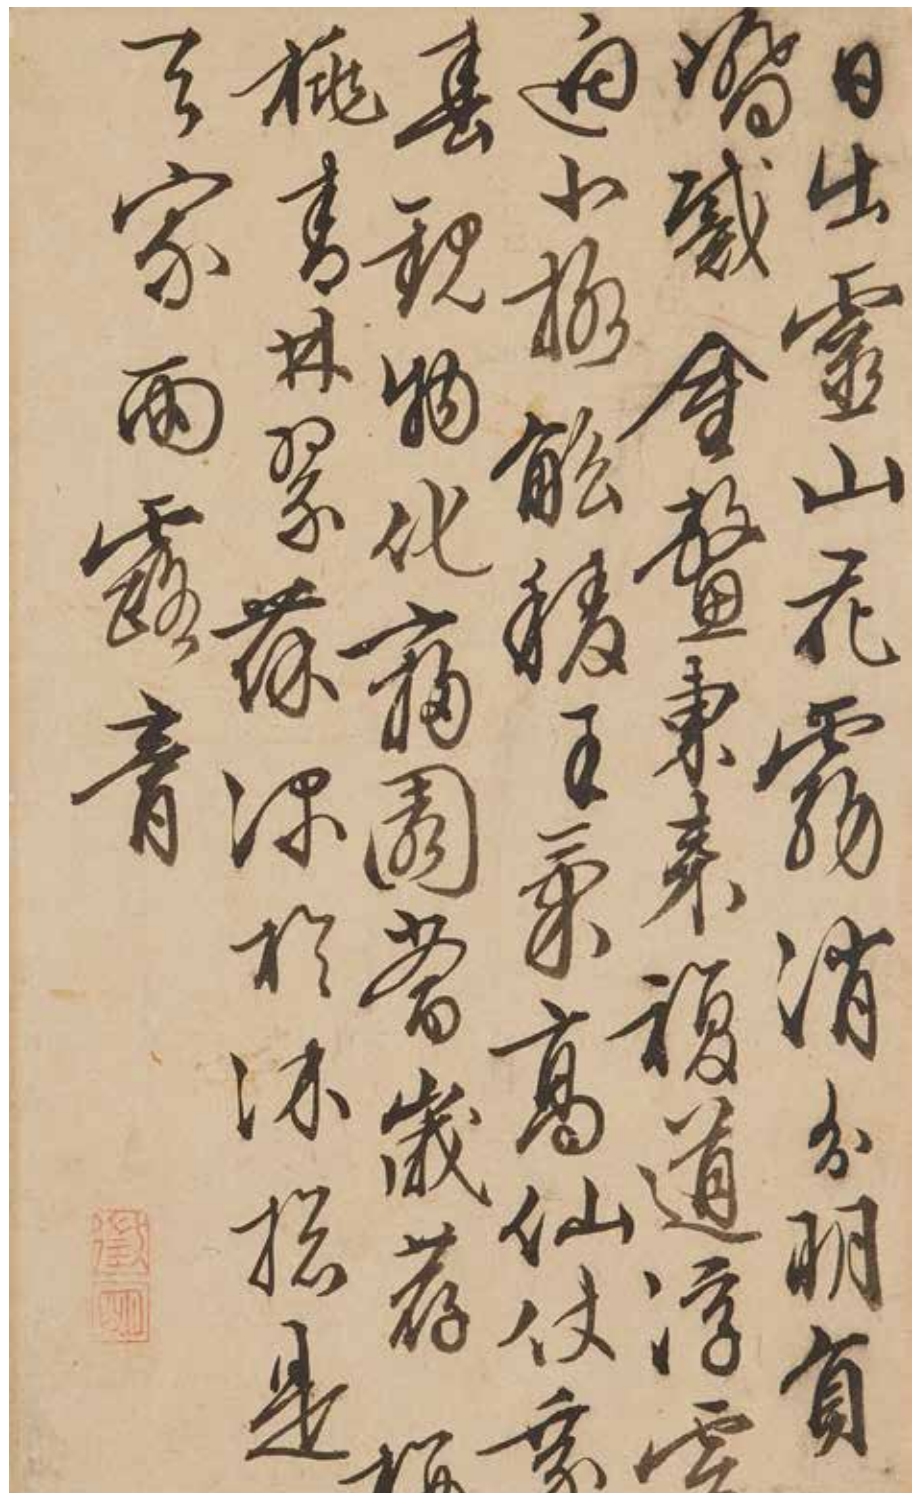 日出靈山花霧消分明員
嶠戴金鰲東來複道浮雲
迥北極觚稜王氣高仙仗乘
春觀物化寢園嘗歲薦櫻
桃青林翠葆深於沐捴是
天家雨露膏
徵明